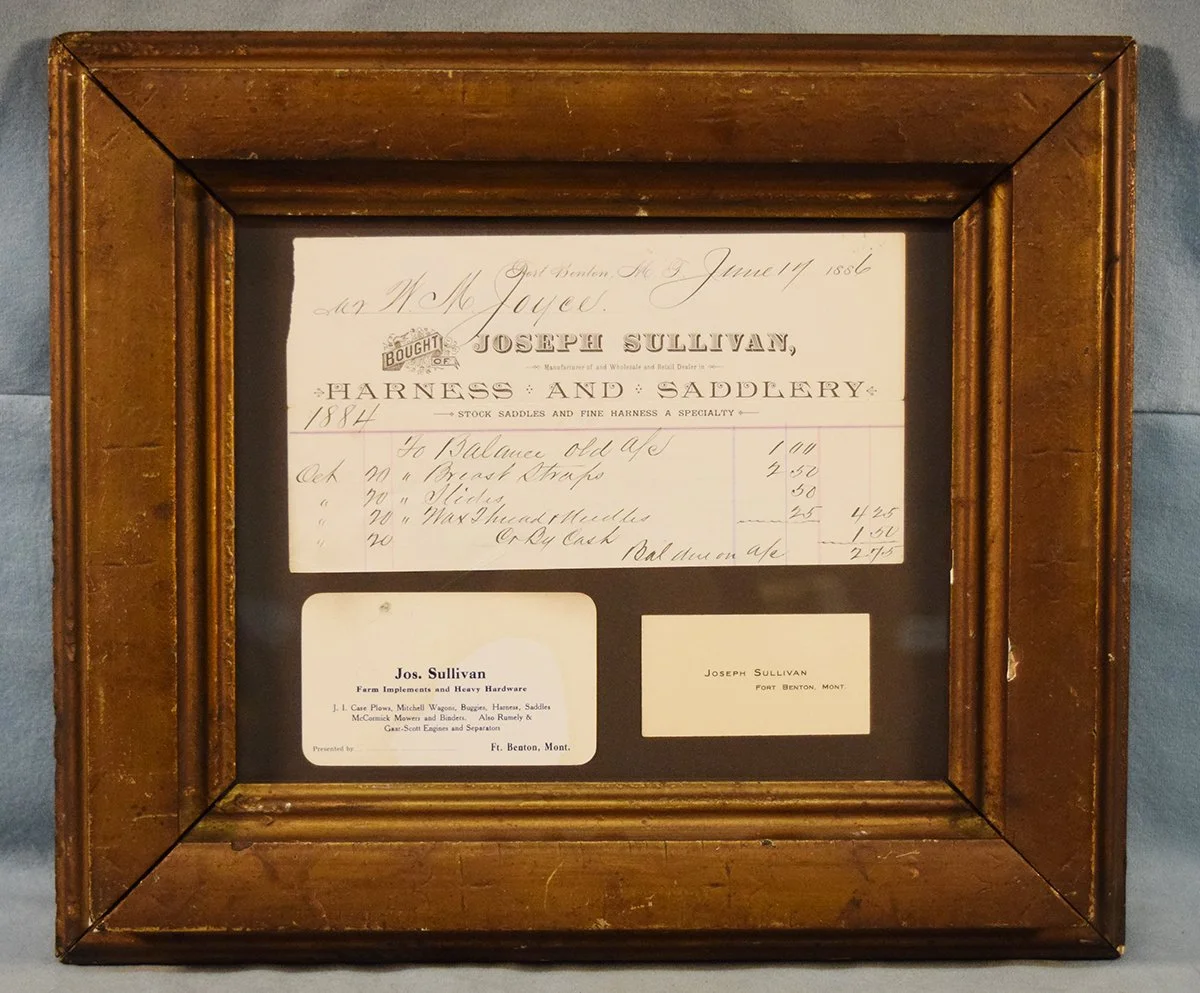 Fort Benton, M. T. June 19 1886
Mr W. M. Joyce.
BOUGHT OF JOSEPH SULLIVAN,
Manufacturer of and Wholesale and Retail Dealer in
HARNESS AND SADDLERY
STOCK SADDLES AND FINE HARNESS A SPECIALTY
1884
To Balance old a/c 1 00
Oct 20 " Breast Straps 2 50
" 20 " Slides 50
" 20 " Wax Thread & Needles 25 4 25
" 20 Cr By Cash 1 50
Bal due on a/c 2 75
Jos. Sullivan
Farm Implements and Heavy Hardware
J. I. Case Plows, Mitchell Wagons, Buggies, Harness, Saddles
McCormick Mowers and Binders. Also Rumely &
Gaar-Scott Engines and Separators
Presented by
Ft. Benton, Mont.
JOSEPH SULLIVAN
FORT BENTON, MONT.